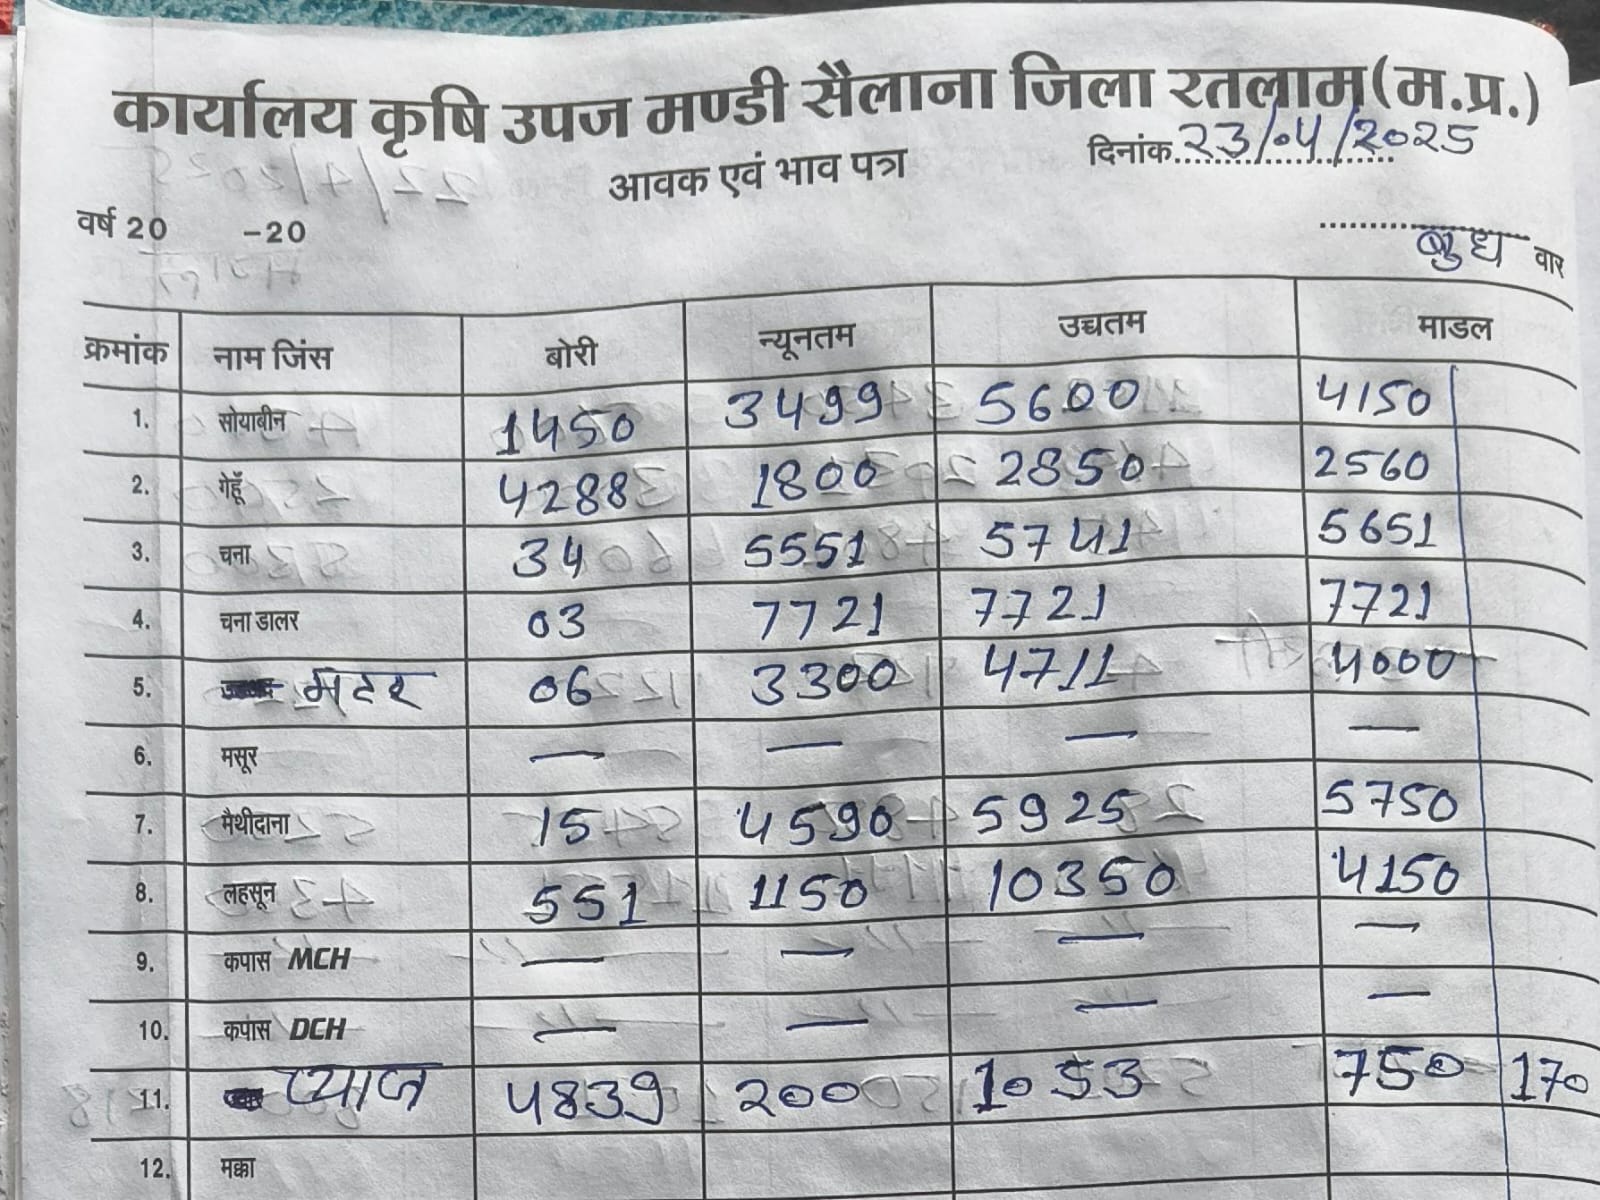 कार्यालय कृषि उपज मण्डी सैलाना जिला रतलाम(म.प्र.)
आवक एवं भाव पत्रा
दिनांक 23/04/2025
वर्ष 20 -20
बुध वार
क्रमांक नाम जिंस बोरी न्यूनतम उच्चतम माडल
1. सोयाबीन 1450 3499 5600 4150
2. गेहूँ 4288 1800 2850 2560
3. चना 34 5551 5741 5651
4. चना डालर 03 7721 7721 7721
5. मटर 06 3300 4711 4000
6. मसूर — — — —
7. मैथीदाना 15 4590 5925 5750
8. लहसून 551 1150 10350 4150
9. कपास MCH — — — —
10. कपास DCH — — — —
11. प्याज 4839 200 1053 750 170
12. मक्का